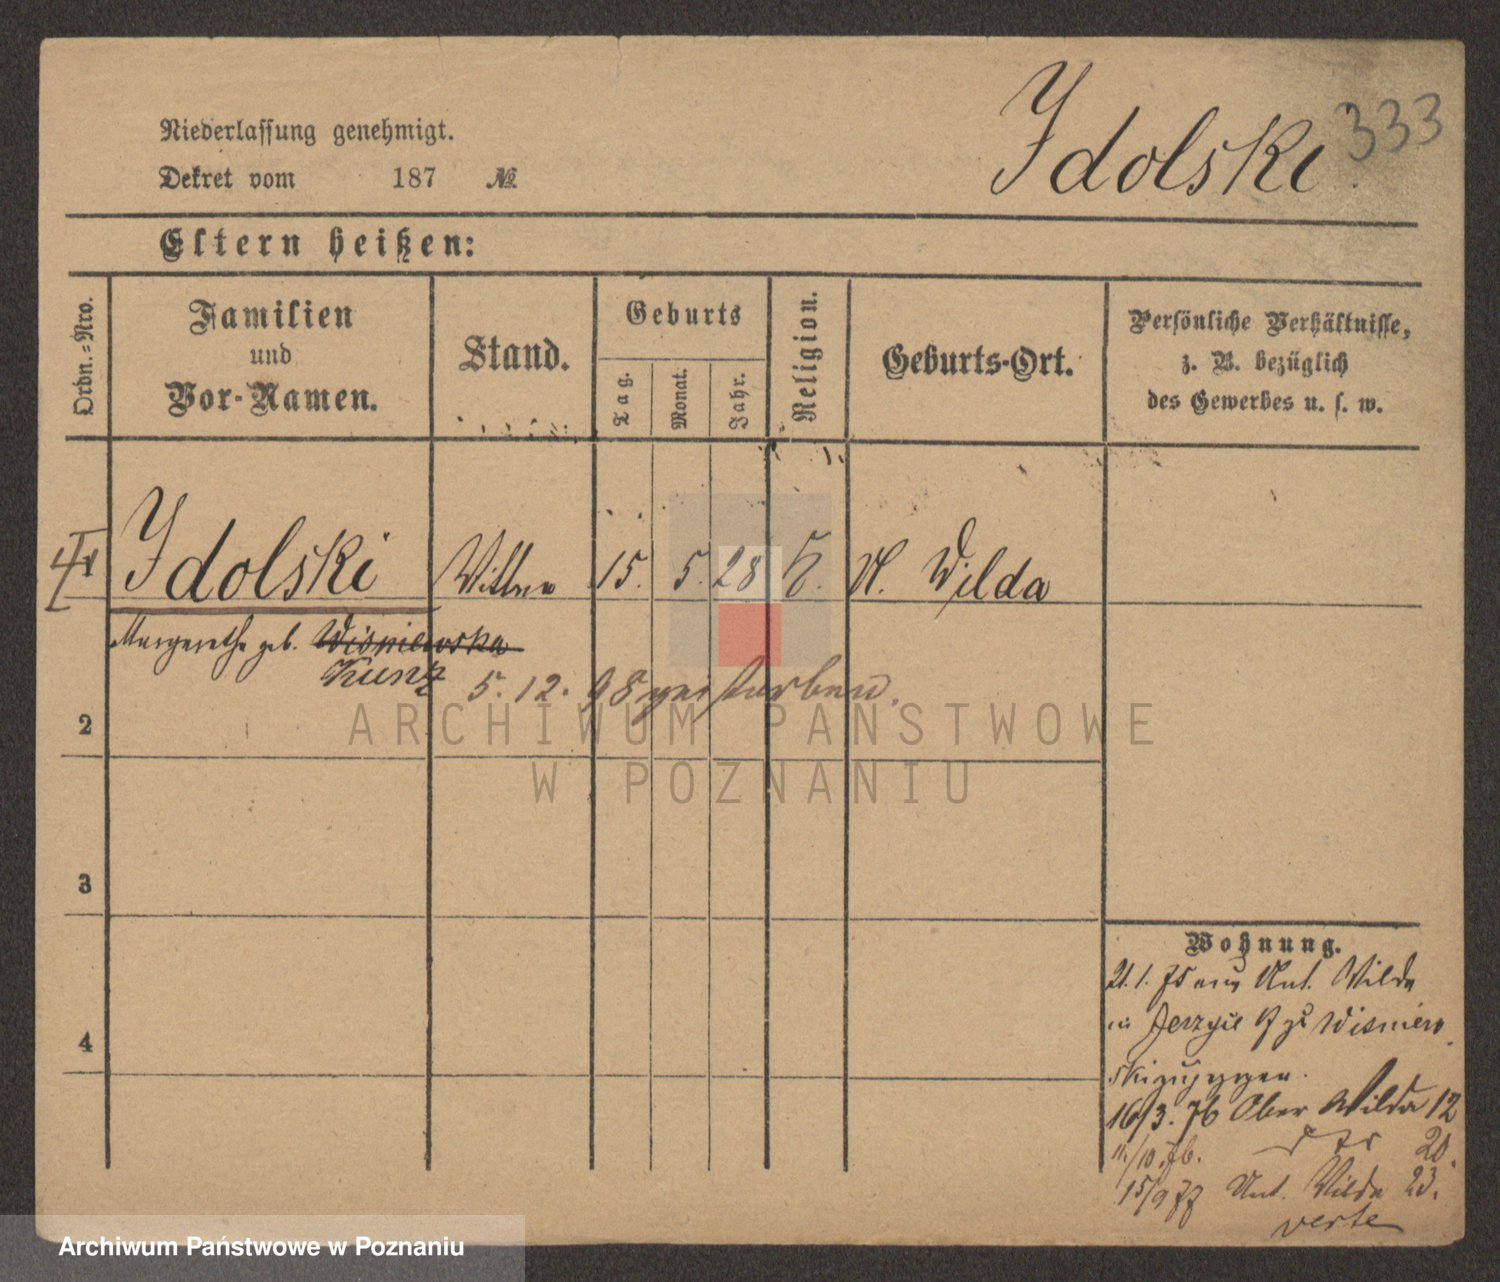 Idolski 333
Niederlassung genehmigt.
Dekret vom 187 №
Eltern heißen:
Ordn.=Nro.
Familien
und
Vor-Namen.
Stand.
Geburts
Tag.
Monat.
Jahr.
Religion.
Geburts-Ort.
Persönliche Verhältnisse,
z. B. bezüglich
des Gewerbes u. s. w.
1 Idolski Wittwe 15. 5. 28 K. U. Wilda
Margarethe geb. Wisniewska
Kunz
5. 12. 98 gestorben.
2
ARCHIWUM PAŃSTWOWE
W POZNANIU
3
4
Wohnung.
21. 1. 75 aus Unt. Wilda
Jerzyce zu Wisniew
ski zugezogen.
16/3. 76 Ober Wilda 12
11./10. 76. 20.
15/9 77 Unt. Wilda 23.
verte
Archiwum Państwowe w Poznaniu